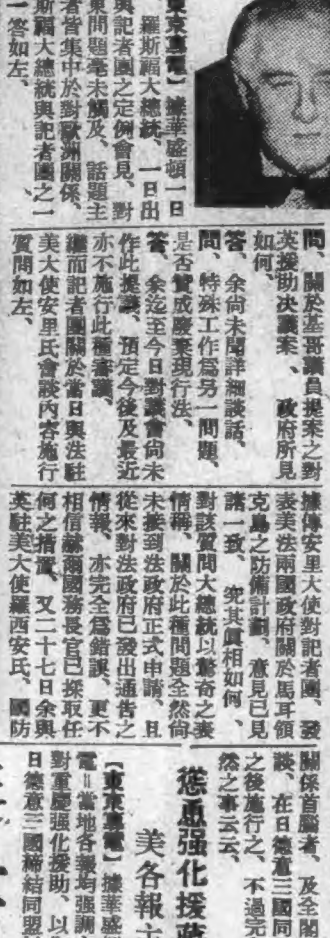 【東京專電】據華盛頓一日
羅斯福大總統、一日出
與記者團之定例會見、對
東問題毫未觸及、話題主
者皆集中於對歐洲關係、
斯福大總統與記者團之一
一答如左、
問、關於基哥議員提案之對
英援助決議案、政府所見
如何、
答、余尚未聞詳細談話、
問、特殊工作爲另一問題、
是否贊成廢棄現行法、
答、余迄至今日對議會尚未
作此提議、預定今後及最近
亦不施行此種審議、
繼而記者團關於當日與法駐
美大使安里氏會談內容施行
質問如左、
據傳安里大使對記者團、發
表美法兩國政府關於馬耳領
克島之防備計劃、意見已見
諸一致、究其眞相如何、
對該質問大總統以驚奇之表
情稱、關於此種問題全然尚
未接到法政府正式申請、且
從來對法政府已發出通告之
情報、亦完全爲錯誤、更不
相信赫爾國務長官已採取任
何之措置、又二十七日余與
英駐美大使羅西安氏、國防
關係首腦者、及全閣
談、在日德意三國同
之後施行之、不過完
然之事云云、
慫恿强化援蔣
美各報主
【東京專電】據華盛
電＝當地各報均强調
對重慶强化援助、以
日德意三國締結同盟